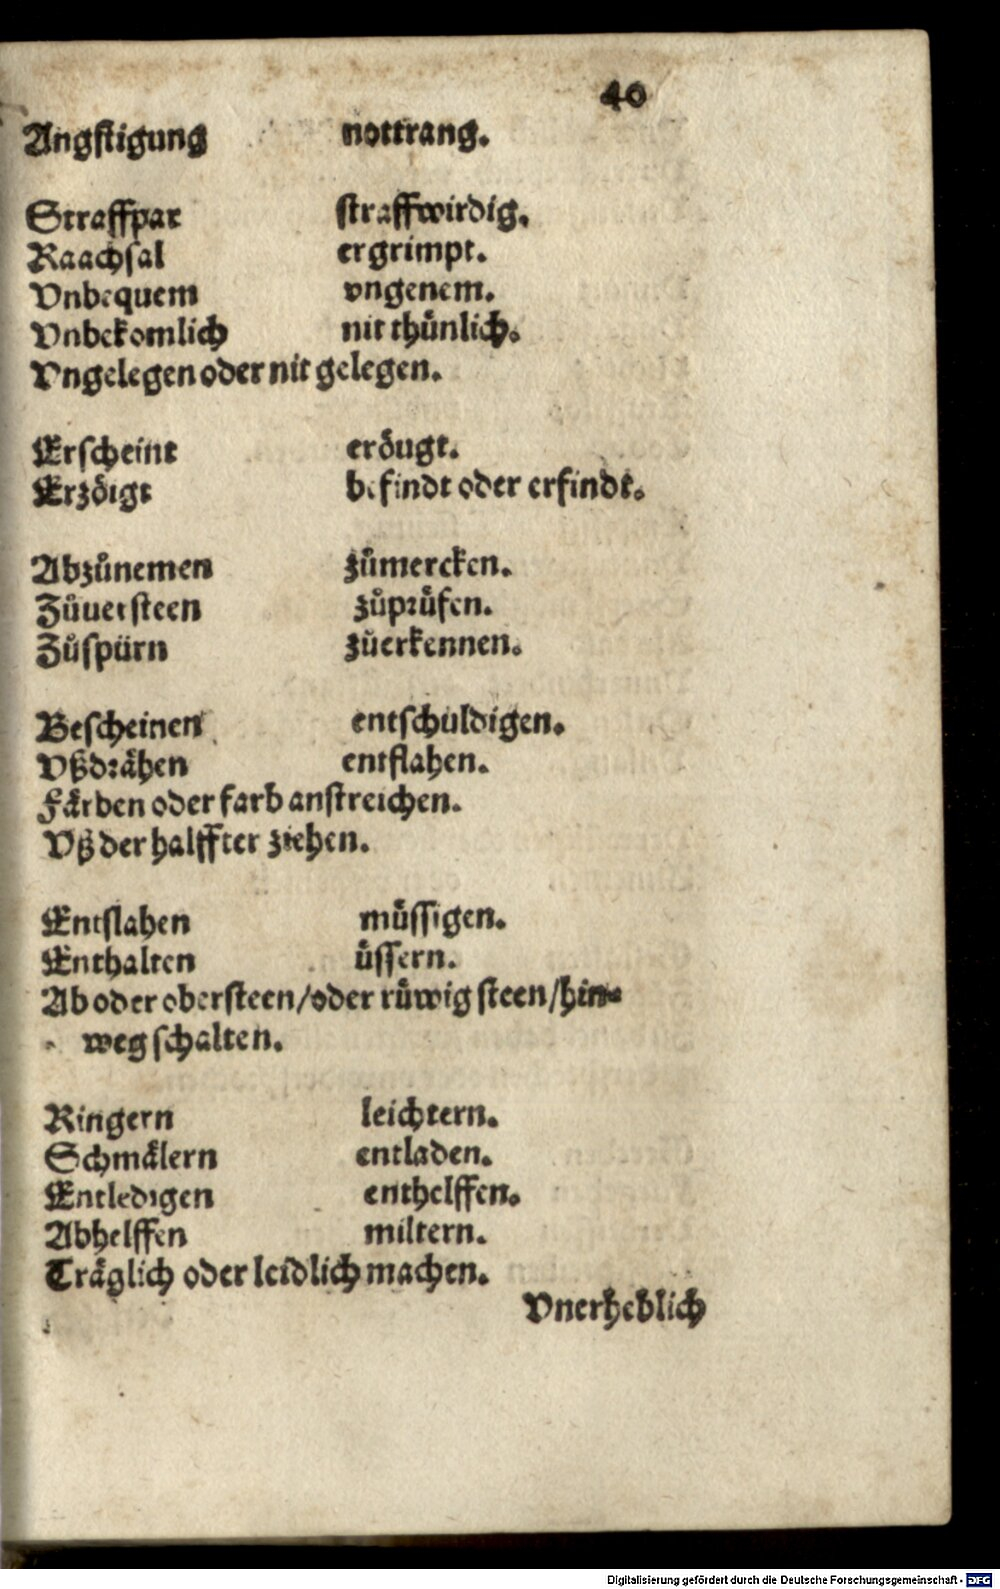 40
Angstigung nottrang.
Straffpar straffwirdig.
Raachsal ergrimpt.
Vnbequem vngenem.
Vnbekomlich nit thůnlich.
Vngelegen oder nit gelegen.
Erscheint erőugt.
Erzőigt befindt oder erfindt.
Abzůnemen zůmercken.
Zůuersteen zůprüfen.
Zůspürn zůerkennen.
Bescheinen entschuldigen.
Vßdrähen entflahen.
Färben oder farb anstreichen.
Vß der halffter ziehen.
Entslahen müssigen.
Enthalten üssern.
Ab oder obersteen/oder rüwig steen/hin-
weg schalten.
Ringern leichtern.
Schmälern entladen.
Entledigen enthelffen.
Abhelffen miltern.
Träglich oder leidlich machen.
Vnerheblich
Digitalisierung gefördert durch die Deutsche Forschungsgemeinschaft - DFG